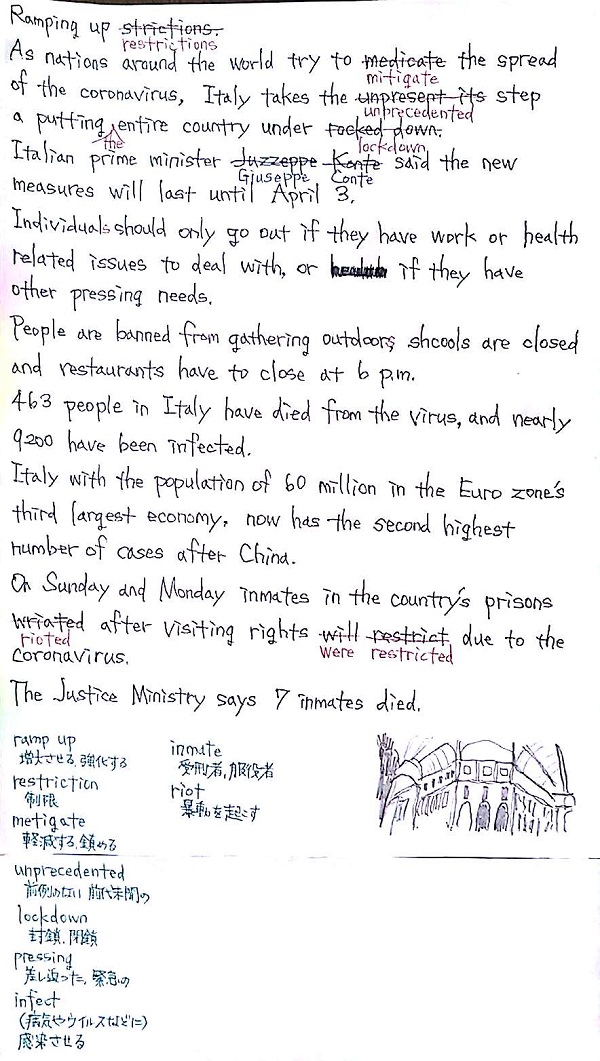 Ramping up strictions.
restrictions
As nations around the world try to medicate the spread
mitigate
of the coronavirus, Italy takes the unpresent its step
unprecedented
a putting entire country under rocked down.
the lockdown
Italian prime minister Juzzeppe Konte said the new
Giuseppe Conte
measures will last until April 3.
Individuals should only go out if they have work or health
related issues to deal with, or if they have
other pressing needs.
People are banned from gathering outdoors, shcools are closed
and restaurants have to close at 6 p.m.
463 people in Italy have died from the virus, and nearly
9200 have been infected.
Italy with the population of 60 million in the Euro zone's
third largest economy, now has the second highest
number of cases after China.
On Sunday and Monday inmates in the country's prisons
wriated after visiting rights will restrict due to the
rioted were restricted
coronavirus.
The Justice Ministry says 7 inmates died.
ramp up
増大させる、強化する
restriction
制限
metigate
軽減する、鎮める
inmate
受刑者、服役者
riot
暴動を起こす
unprecedented
前例のない 前代未聞の
lockdown
封鎖、閉鎖
pressing
差し迫った、緊急の
infect
(病気やウイルスなどに)
感染させる